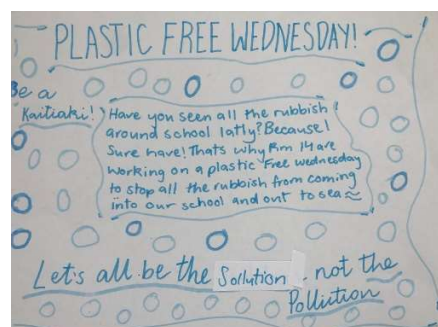 PLASTIC FREE WEDNESDAY!
Be a
Kaitiaki!
Have you seen all the rubbish
around school latly? Because I
Sure have! Thats why Rm 14 are
working on a plastic Free wednesday
to stop all the rubbish from coming
into our school and out to sea
Let's all be the Sollution not the
Pollution